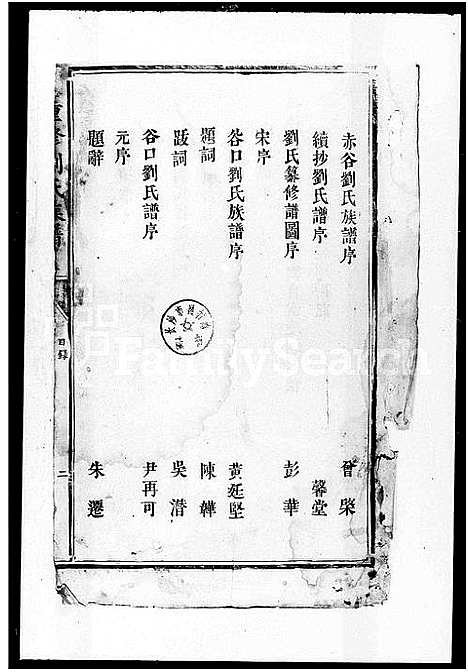 赤谷劉氏族譜序 曾棨
續抄劉氏譜序 馨堂
劉氏纂修譜圖序 彭華
宋序
谷口劉氏族譜序 黃廷堅
題詞 陳韡
跋詞 吳潛
谷口劉氏譜序 尹再可
元序
題辭 朱遷
重修劉氏族譜
目錄
二
FamilySearch